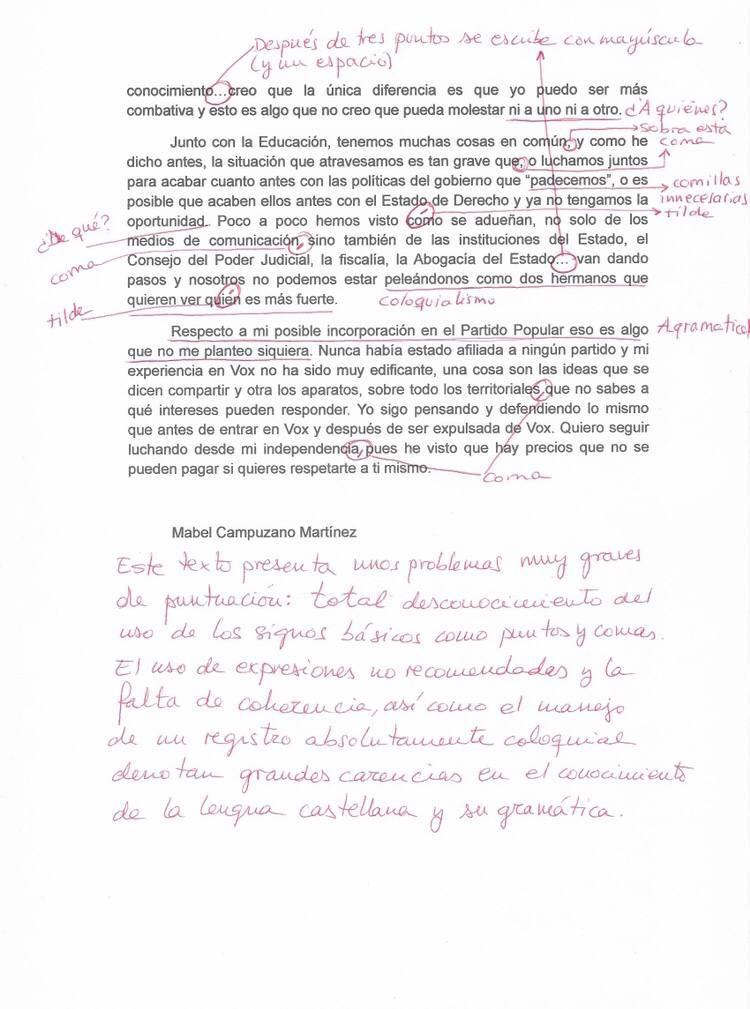 Después de tres puntos se escribe con mayúscula
(y un espacio)
conocimiento...creo que la única diferencia es que yo puedo ser más
combativa y esto es algo que no creo que pueda molestar ni a uno ni a otro. ¿A quiénes?
sobra esta
Junto con la Educación, tenemos muchas cosas en común, y como he
coma
dicho antes, la situación que atravesamos es tan grave que, o luchamos juntos
para acabar cuanto antes con las políticas del gobierno que “padecemos”, o es
comillas
posible que acaben ellos antes con el Estado de Derecho y ya no tengamos la
innecesarias
¿De qué?
oportunidad. Poco a poco hemos visto como se adueñan, no solo de los
tilde
medios de comunicación, sino también de las instituciones del Estado, el
coma
Consejo del Poder Judicial, la fiscalía, la Abogacía del Estado... van dando
pasos y nosotros no podemos estar peleándonos como dos hermanos que
tilde
quieren ver quien es más fuerte.
coloquialismo
Respecto a mi posible incorporación en el Partido Popular eso es algo
Agramatical
que no me planteo siquiera. Nunca había estado afiliada a ningún partido y mi
experiencia en Vox no ha sido muy edificante, una cosa son las ideas que se
dicen compartir y otra los aparatos, sobre todo los territoriales,que no sabes a
qué intereses pueden responder. Yo sigo pensando y defendiendo lo mismo
que antes de entrar en Vox y después de ser expulsada de Vox. Quiero seguir
luchando desde mi independencia, pues he visto que hay precios que no se
pueden pagar si quieres respetarte a ti mismo.
coma
Mabel Campuzano Martínez
Este texto presenta unos problemas muy graves
de puntuación: total desconocimiento del
uso de los signos básicos como puntos y comas.
El uso de expresiones no recomendadas y la
falta de coherencia, así como el manejo
de un registro absolutamente coloquial
denotan grandes carencias en el conocimiento
de la lengua castellana y su gramática.